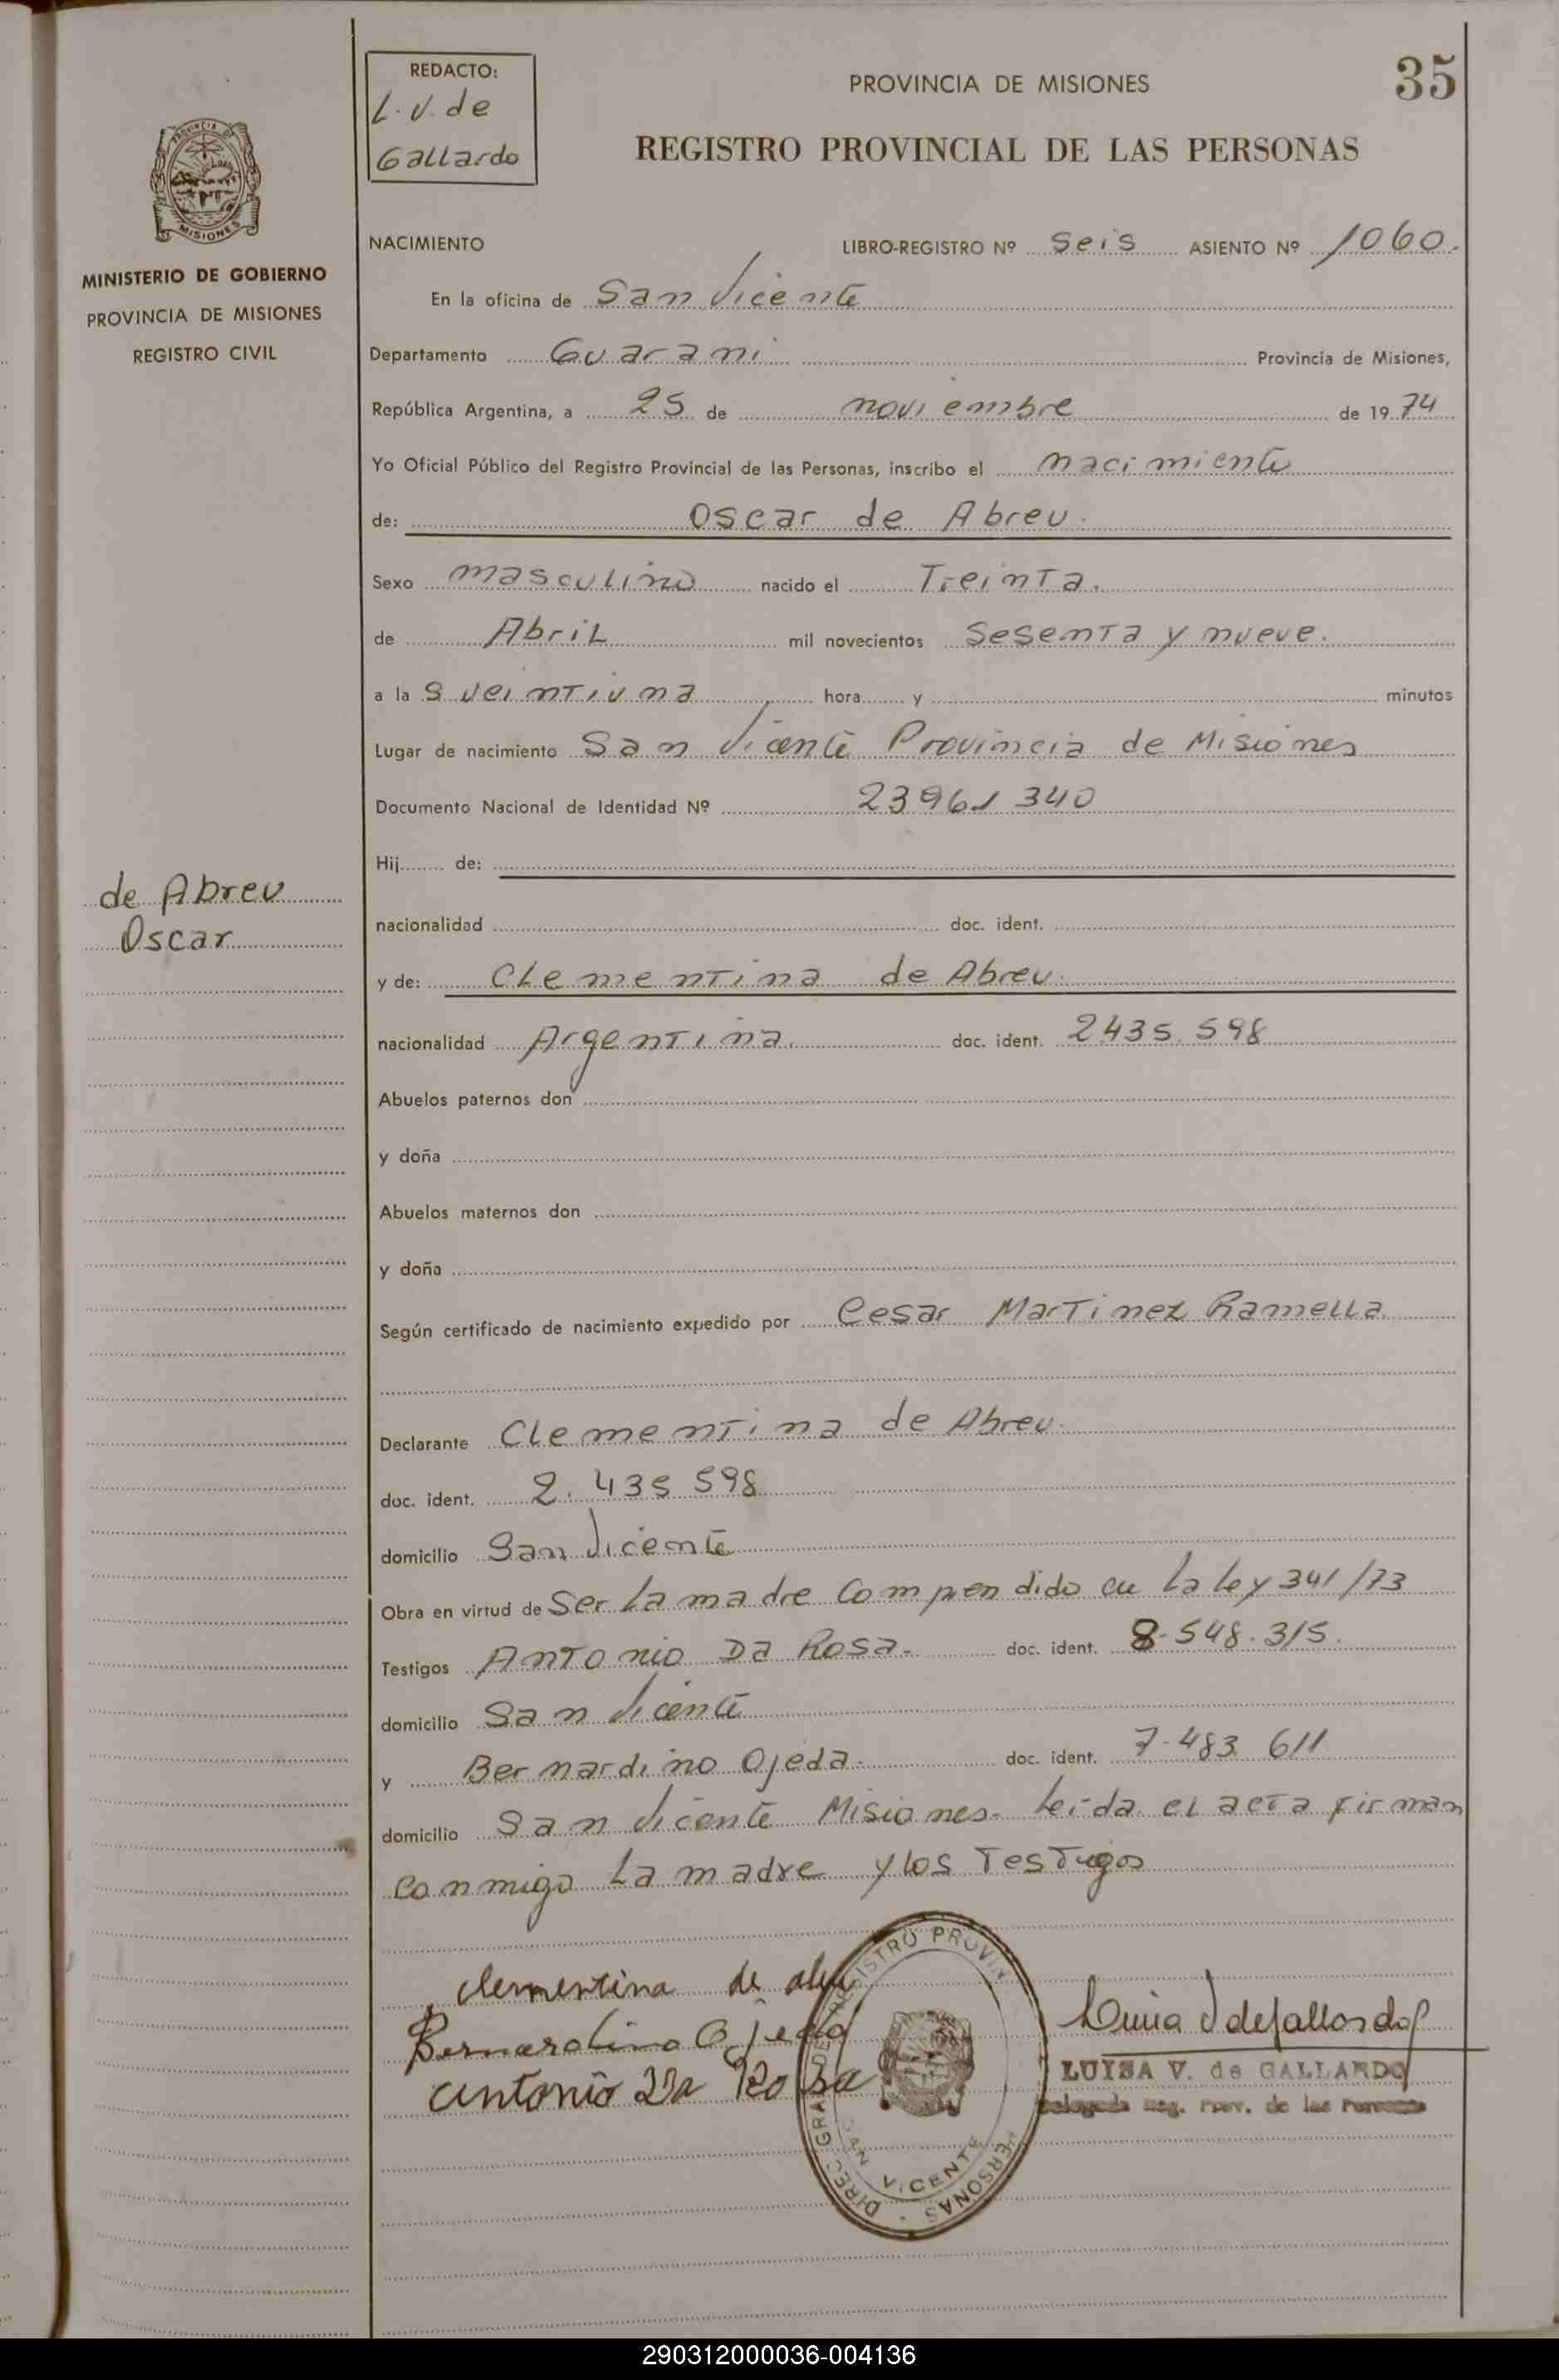 35
REDACTO:
L. V. de
Gallardo
PROVINCIA DE MISIONES
REGISTRO PROVINCIAL DE LAS PERSONAS
PROVINCIA DE
MISIONES
MINISTERIO DE GOBIERNO
PROVINCIA DE MISIONES
REGISTRO CIVIL
NACIMIENTO LIBRO-REGISTRO Nº seis ASIENTO Nº 1060.
En la oficina de San Vicente
Departamento Guarani Provincia de Misiones,
República Argentina, a 25 de noviembre de 1974
Yo Oficial Público del Registro Provincial de las Personas, inscribo el nacimiento
de: Oscar de Abreu.
Sexo masculino nacido el Treinta.
de Abril mil novecientos Sesenta y nueve.
a la s veintiuna hora y minutos
Lugar de nacimiento San Vicente Provincia de Misiones
Documento Nacional de Identidad Nº 23961340
Hij de:
de Abreu
Oscar
nacionalidad doc. ident.
y de: Clementina de Abreu.
nacionalidad Argentina. doc. ident. 2435.598
Abuelos paternos don
y doña
Abuelos maternos don
y doña
Según certificado de nacimiento expedido por Cesar Martinez Ramella.
Declarante Clementina de Abreu.
doc. ident. 2.435 598
domicilio San Vicente
Obra en virtud de Ser la madre Comprendido en la ley 341/73
Testigos Antonio Da Rosa. doc. ident. 8.548.315.
domicilio San Vicente
y Bernardino Ojeda. doc. ident. 7.483 611
domicilio San Vicente Misiones. Leida el acta firman
conmigo La madre y los Testigos
clementina de abreu
Bernardino Ojeda
antonio Da Rosa
DIREC. GRAL. DE REGISTRO PROVIN PERSONAS
SAN VICENTE
LUISA V. de GALLARDO
Delegada Reg. Prov. de las Personas
290312000036-004136